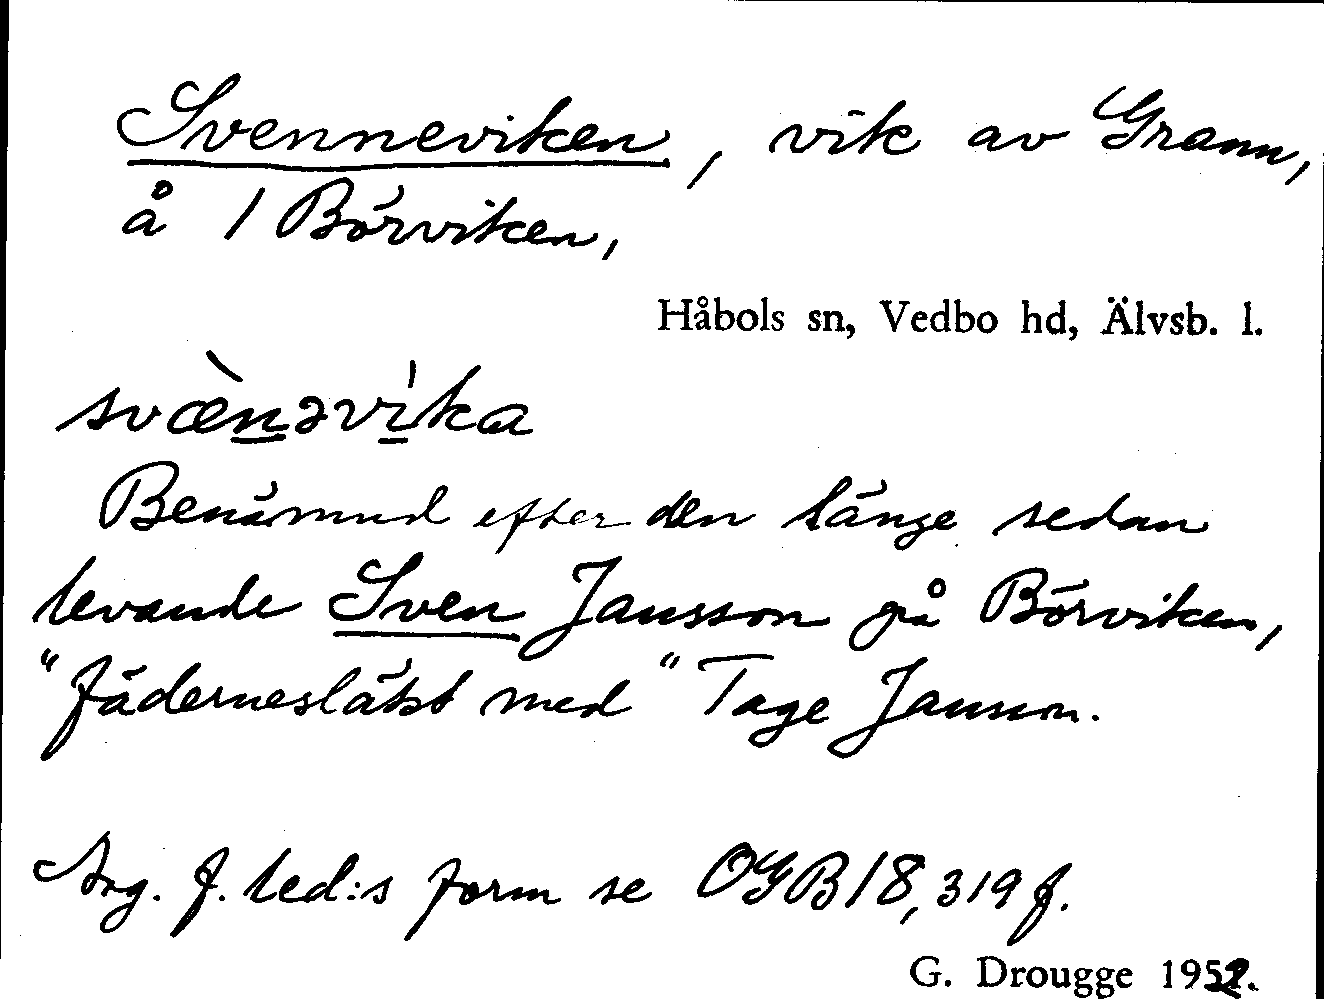 Svenneviken, vik av Grann,
å 1 Börviken,
Håbols sn, Vedbo hd, Älvsb. l.
svæ̀n̲əvi̲̍ka
Benämnd efter den länge sedan
levande Sven Jansson på Börviken,
"fädernesläkt med" Tage Janson.
Ang. f. led:s form se OGB 18, 319 f.
G. Drougge 1952.